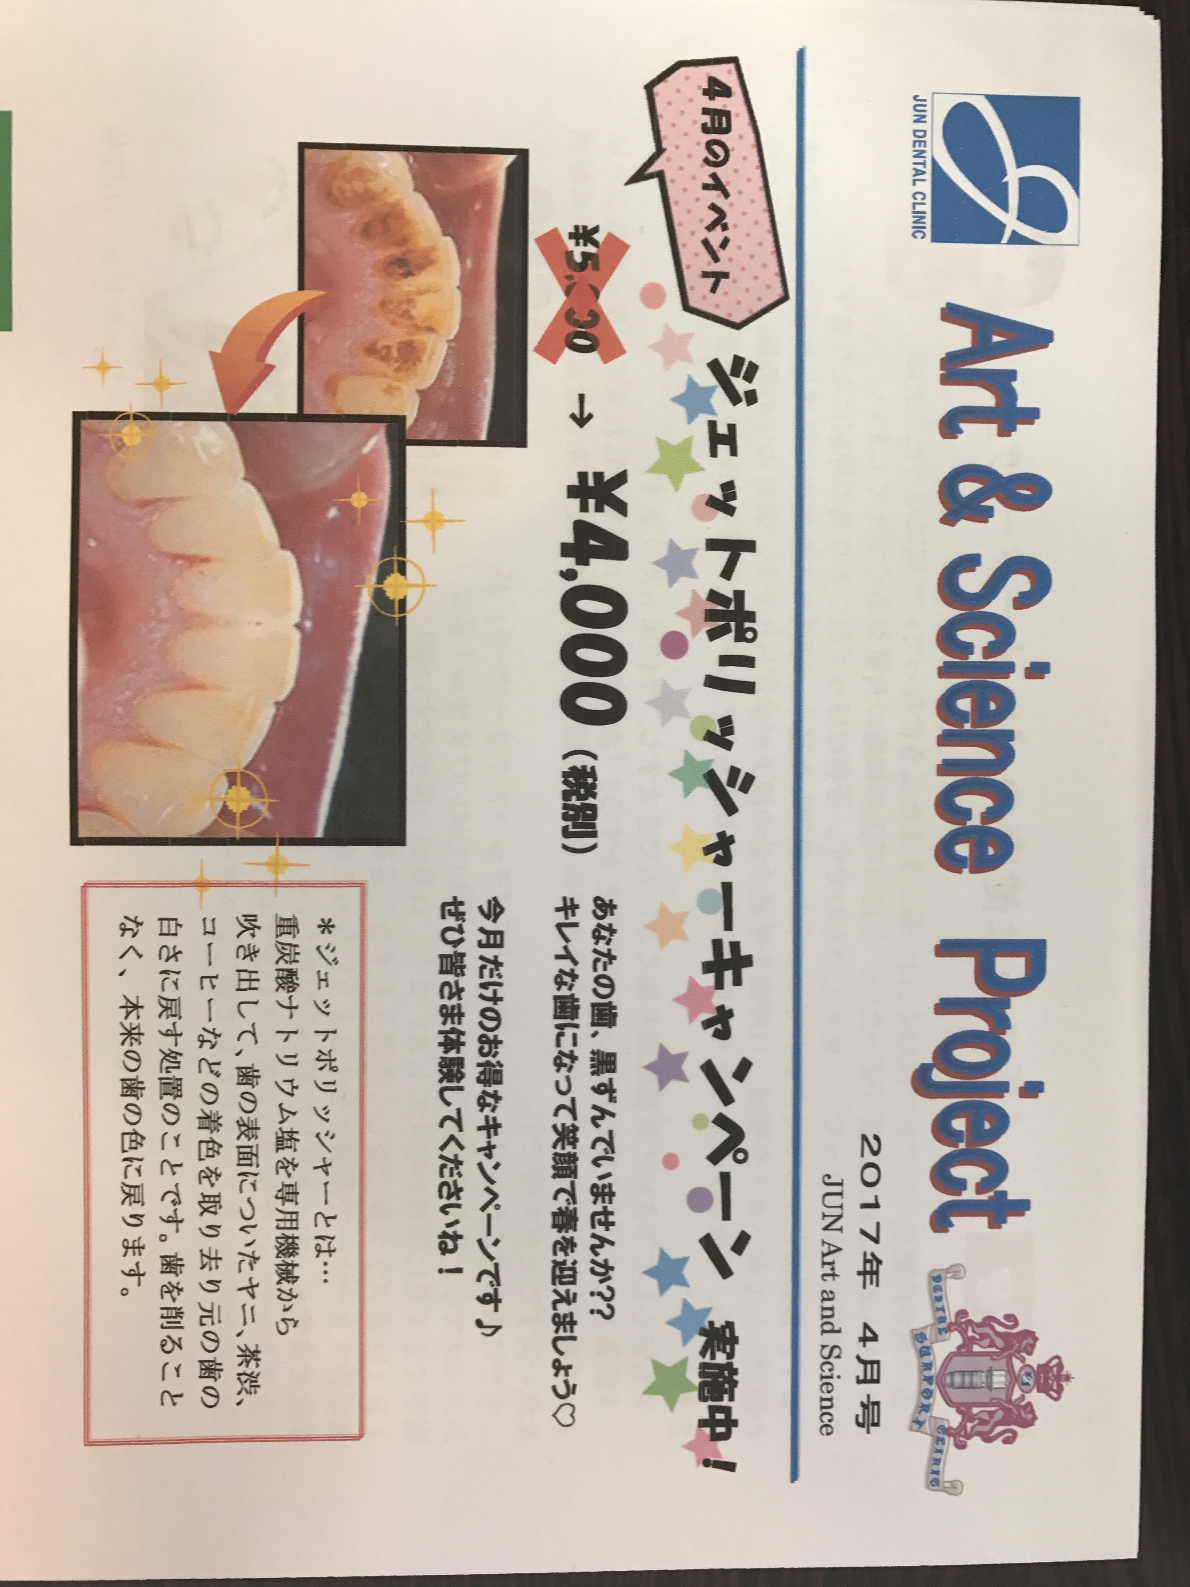 JUN DENTAL CLINIC
Art & Science Project
DENTAL SUPPORT CLINIC
2017年 4月号
JUN Art and Science
4月のイベント
ジェットポリッシャーキャンペーン 実施中！
→ ¥4,000（税別）
あなたの歯、黒ずんでいませんか??
キレイな歯になって笑顔で春を迎えましょう♡
今月だけのお得なキャンペーンです♪
ぜひ皆さま体験してくださいね！
＊ジェットポリッシャーとは…
重炭酸ナトリウム塩を専用機械から
吹き出して、歯の表面についたヤニ、茶渋、
コーヒーなどの着色を取り去り元の歯の
白さに戻す処置のことです。歯を削ること
なく、本来の歯の色に戻ります。